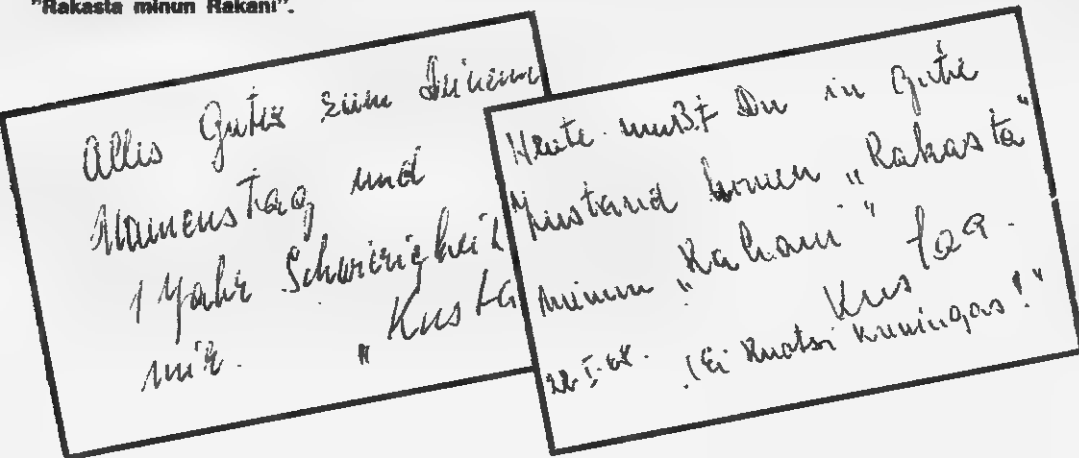 "Rakasta minun Rakani".
Allis Gutes zum Deinem
Namenstag und
1 Yahr Schwirigkeit
mir. "Kusta
Heute mußt Du in Gute
Zustand komen "Rakasta"
minun "Rakani" Kustaa.
(Ei Ruotsi kuningas!"